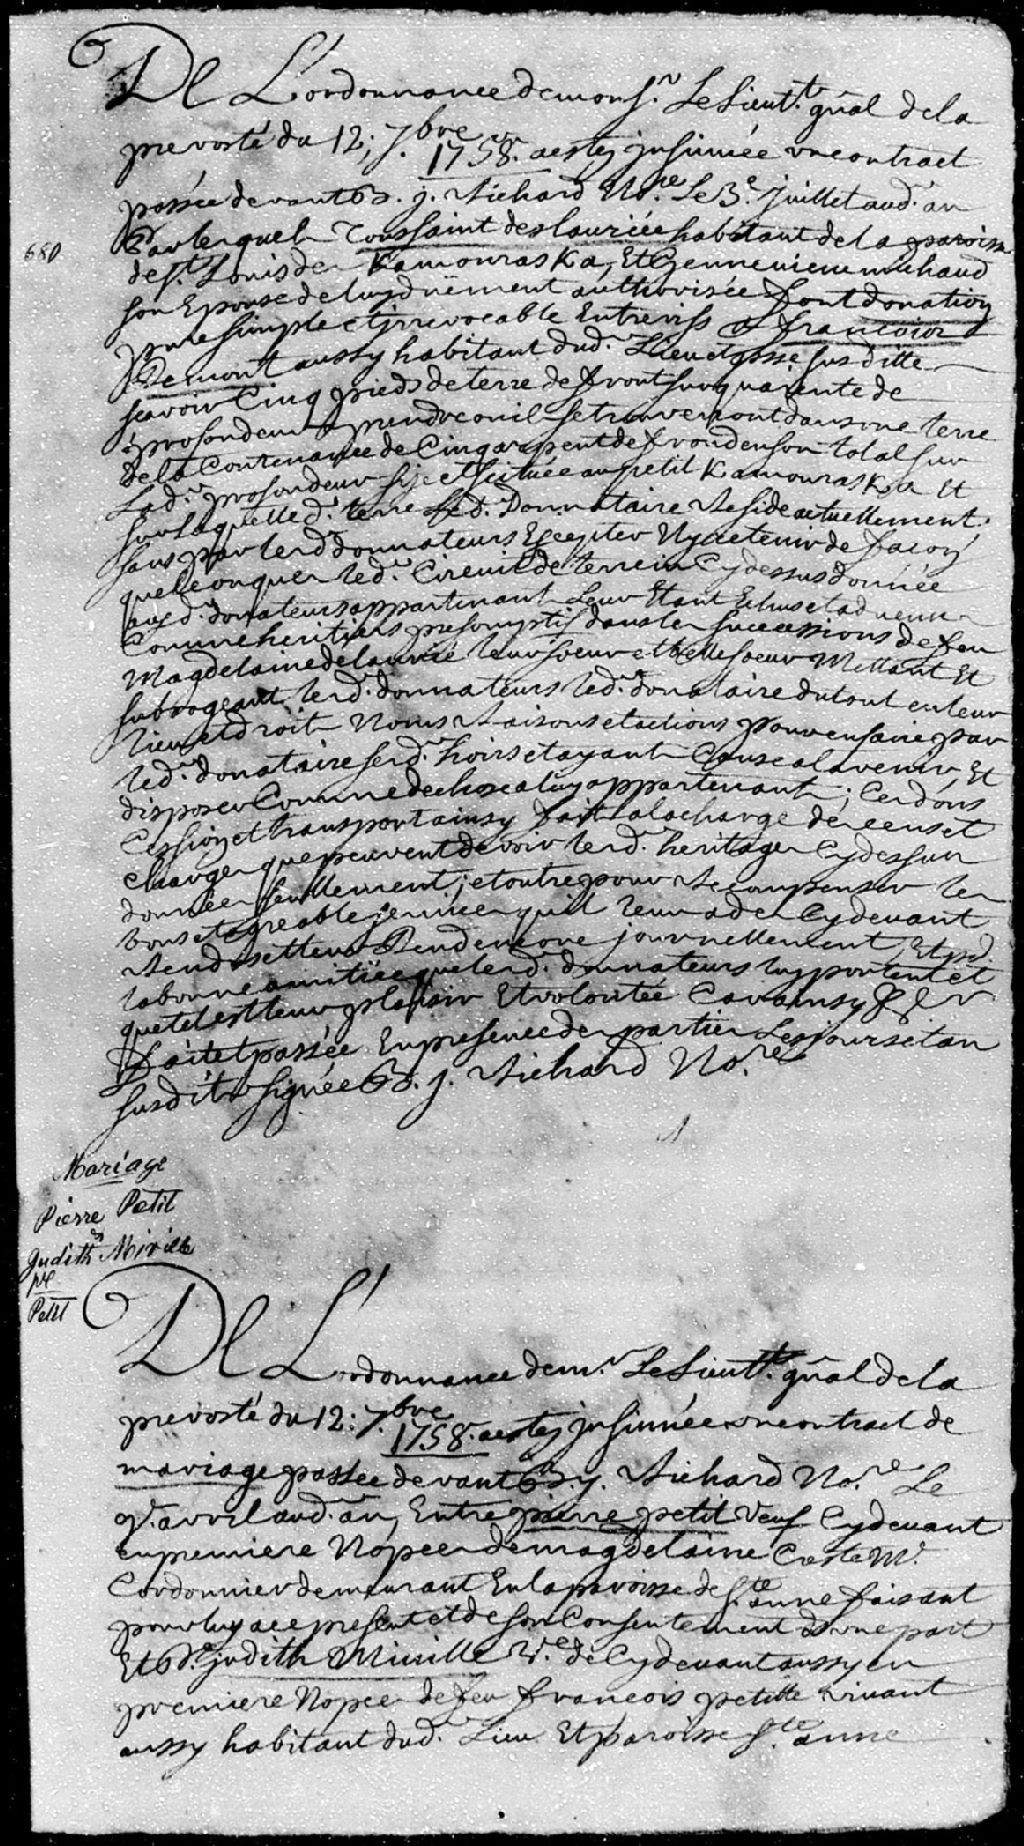 De L'ordonnance de mons.r Le Lieut.t gnãl de la
prevosté du 12; 7.bre 1758. a esté jnsinuée vn contract
passée devant B. j. Richard No.re Le 3.e juillet aud. an
Par lequel Toussaint deslauriée habitant de la paroisse
680
de s.t Louis de Kamouraska, Et Gennevieve michaud
son Epouse de luy duëment authorisée font donation
pure simple et jrrevocable Entrevifs a francois
Demont aussy habitant dud. Lieu et poisse susditte
scavoir Cinq pieds de terre de front sur quarente de
profondeur a prendre ou il se trouveront dans une terre
de la Contenance de Cinq arpent de frond en son total sur
Lad. profondeur size et scituée au petit Kamouraska Et
sur laquelle d. terre Led. Donnataire Reside actuellement.
sans par lesd donnateurs Excepter Ny retenir de facon
quelconque led. Circuit de terrein Cy dessus donnée
aux d. donateurs appartenant Leur Etant Echus et advenu
Comme heritiers presomptifs dans les successions de feu
Magdelaine delaurié leur soeur et belle soeur Mettant Et
subrogeant lesd. donnateurs led. donataire du tout en leur
lieu et droit Noms Raisons et actions pour en faire par
led. donataire sesd. hoirs et ayant Cause al avenir, Et
disposer Comme de chose a luy appartenant; Ces dons
Cession et transport ainsy fait a la charge des cens et
charges que peuvent devoir lesd. heritages Cy dessus
donnée seullement; et outre pour Recompenser les
bons et agreable service qu'il leur a des Cy devant
Rendu et leur Rend encore journellement, Et pr.
la bonne amitiée que lesd. donnateurs luy portent et
que tel est leur plaisir Et volontée Car ainsy &c
Fait et passée En presence des parties Les jours et an
susdits signée B. j. Richard No.re
Mariage
Pierre Petit
Judith Miville
Petit
De L'ordonnance de m.r Le Lieut.t gnãl de la
prevosté du 12: 7.bre 1758. a esté jnsinuée un contract de
mariage passée devant B. j. Richard No.re Le
avril aud. an, Entre pierre petit veuf Cy devant
en premiere Nopces de magdelaine Caste M.e
Cordonnier demeurant En la paroisse de s.te anne faisant
pour luy a ce present et de son Consentement d'une part
Et judith Miville V.e de Cy devant aussy en
premiere Nopces de feu francois petitte vivant
aussy habitant dud. Lieu Et paroisse s.te anne